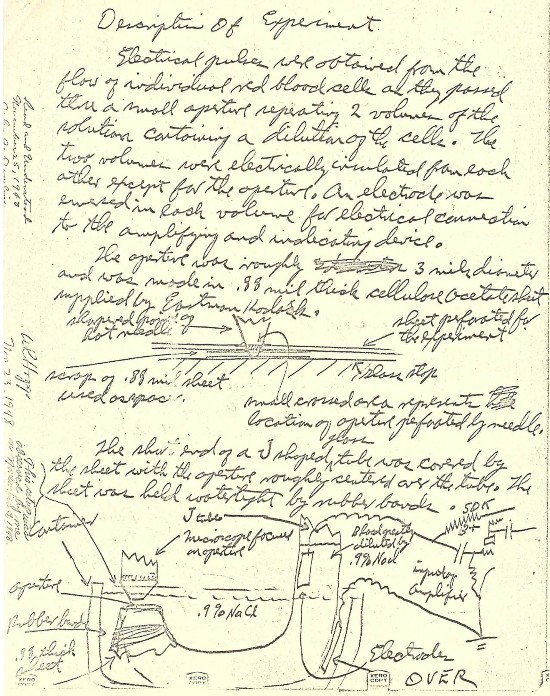 Description Of Experiment
Electrical pulses were obtained from the
flow of individual red blood cells as they passed
thru a small aperture separating 2 volumes of the
solution containing a dilution of the cells. The
two volumes were electrically insulated from each
other except for the aperture. An electrode was
emersed in each volume for electrical connection
to the amplifying and indicating device.
The aperture was roughly 3 mils diameter
and was made in .88 mil thick cellulose acetate sheet
supplied by Eastman Kodak.
shaped point of
hot needle
sheet perforated for
the experiment
scrap of .88 mil sheet
used as
glass
small crossed area represents
location of aperture perforated by needle.
The short end of a J shaped glass tube was covered by
the sheet with the aperture roughly centered over the tube. The
sheet was held watertight by rubber bands.
Container
J tube
microscope focused
on aperture
Blood greatly
diluted by
.9% NaCl
50K
input of
amplifier
aperture
.9% NaCl
Rubber bands
.88 thick
sheet
Electrodes
OVER
XERO
COPY
XERO
COPY
XERO
COPY
Read and Understood
1948